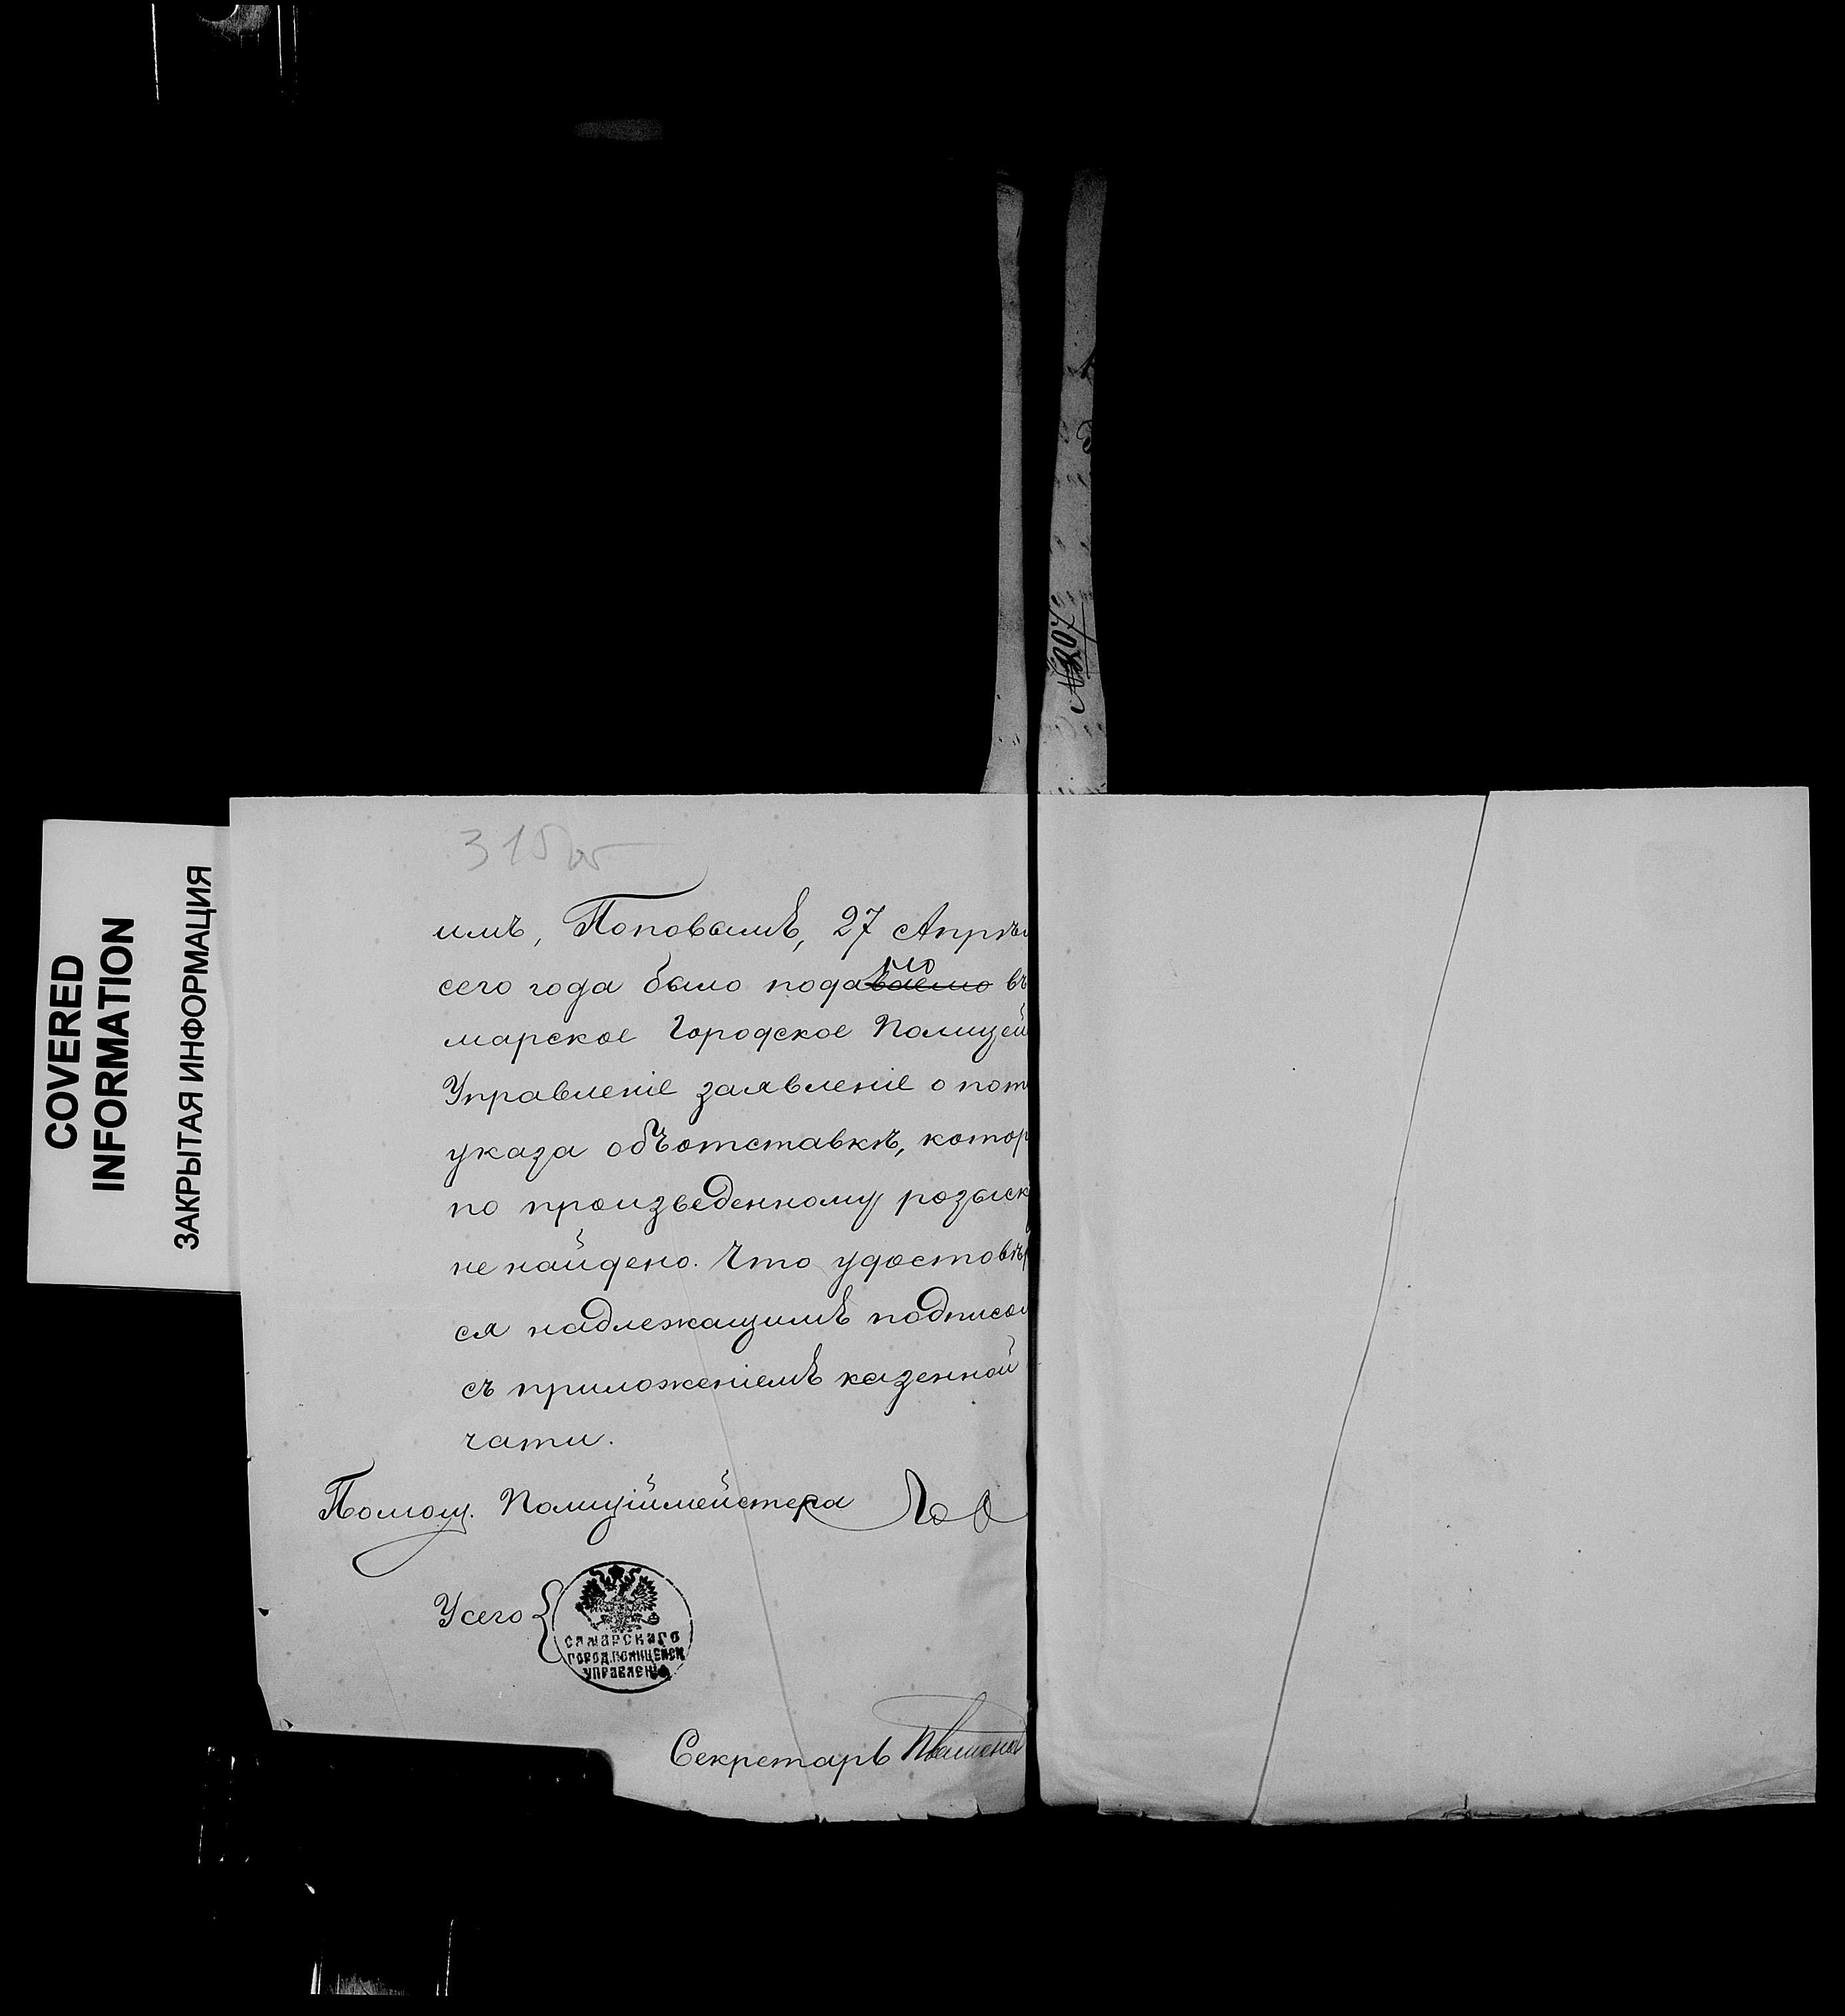 COVERED
INFORMATION
ЗАКРЫТАЯ ИНФОРМАЦИЯ
№ 207
315об
имъ, Поповымъ, 27 Апрѣл
сего года было подаваемо но въ
марское Городское Полицей
Управленіе заявленіе о пот
указа объ отставкѣ, котор
по произведенному розыск
не найдено. Что удостовѣр
ся надлежащимъ подписом
съ приложеніемъ казенной
чати.
Помощ. Полиціймейстера
У сего {
САМАРСКАГО
ГОРОД. ПОЛИЦЕЙСК
УПРАВЛЕНІЯ
Секретарь